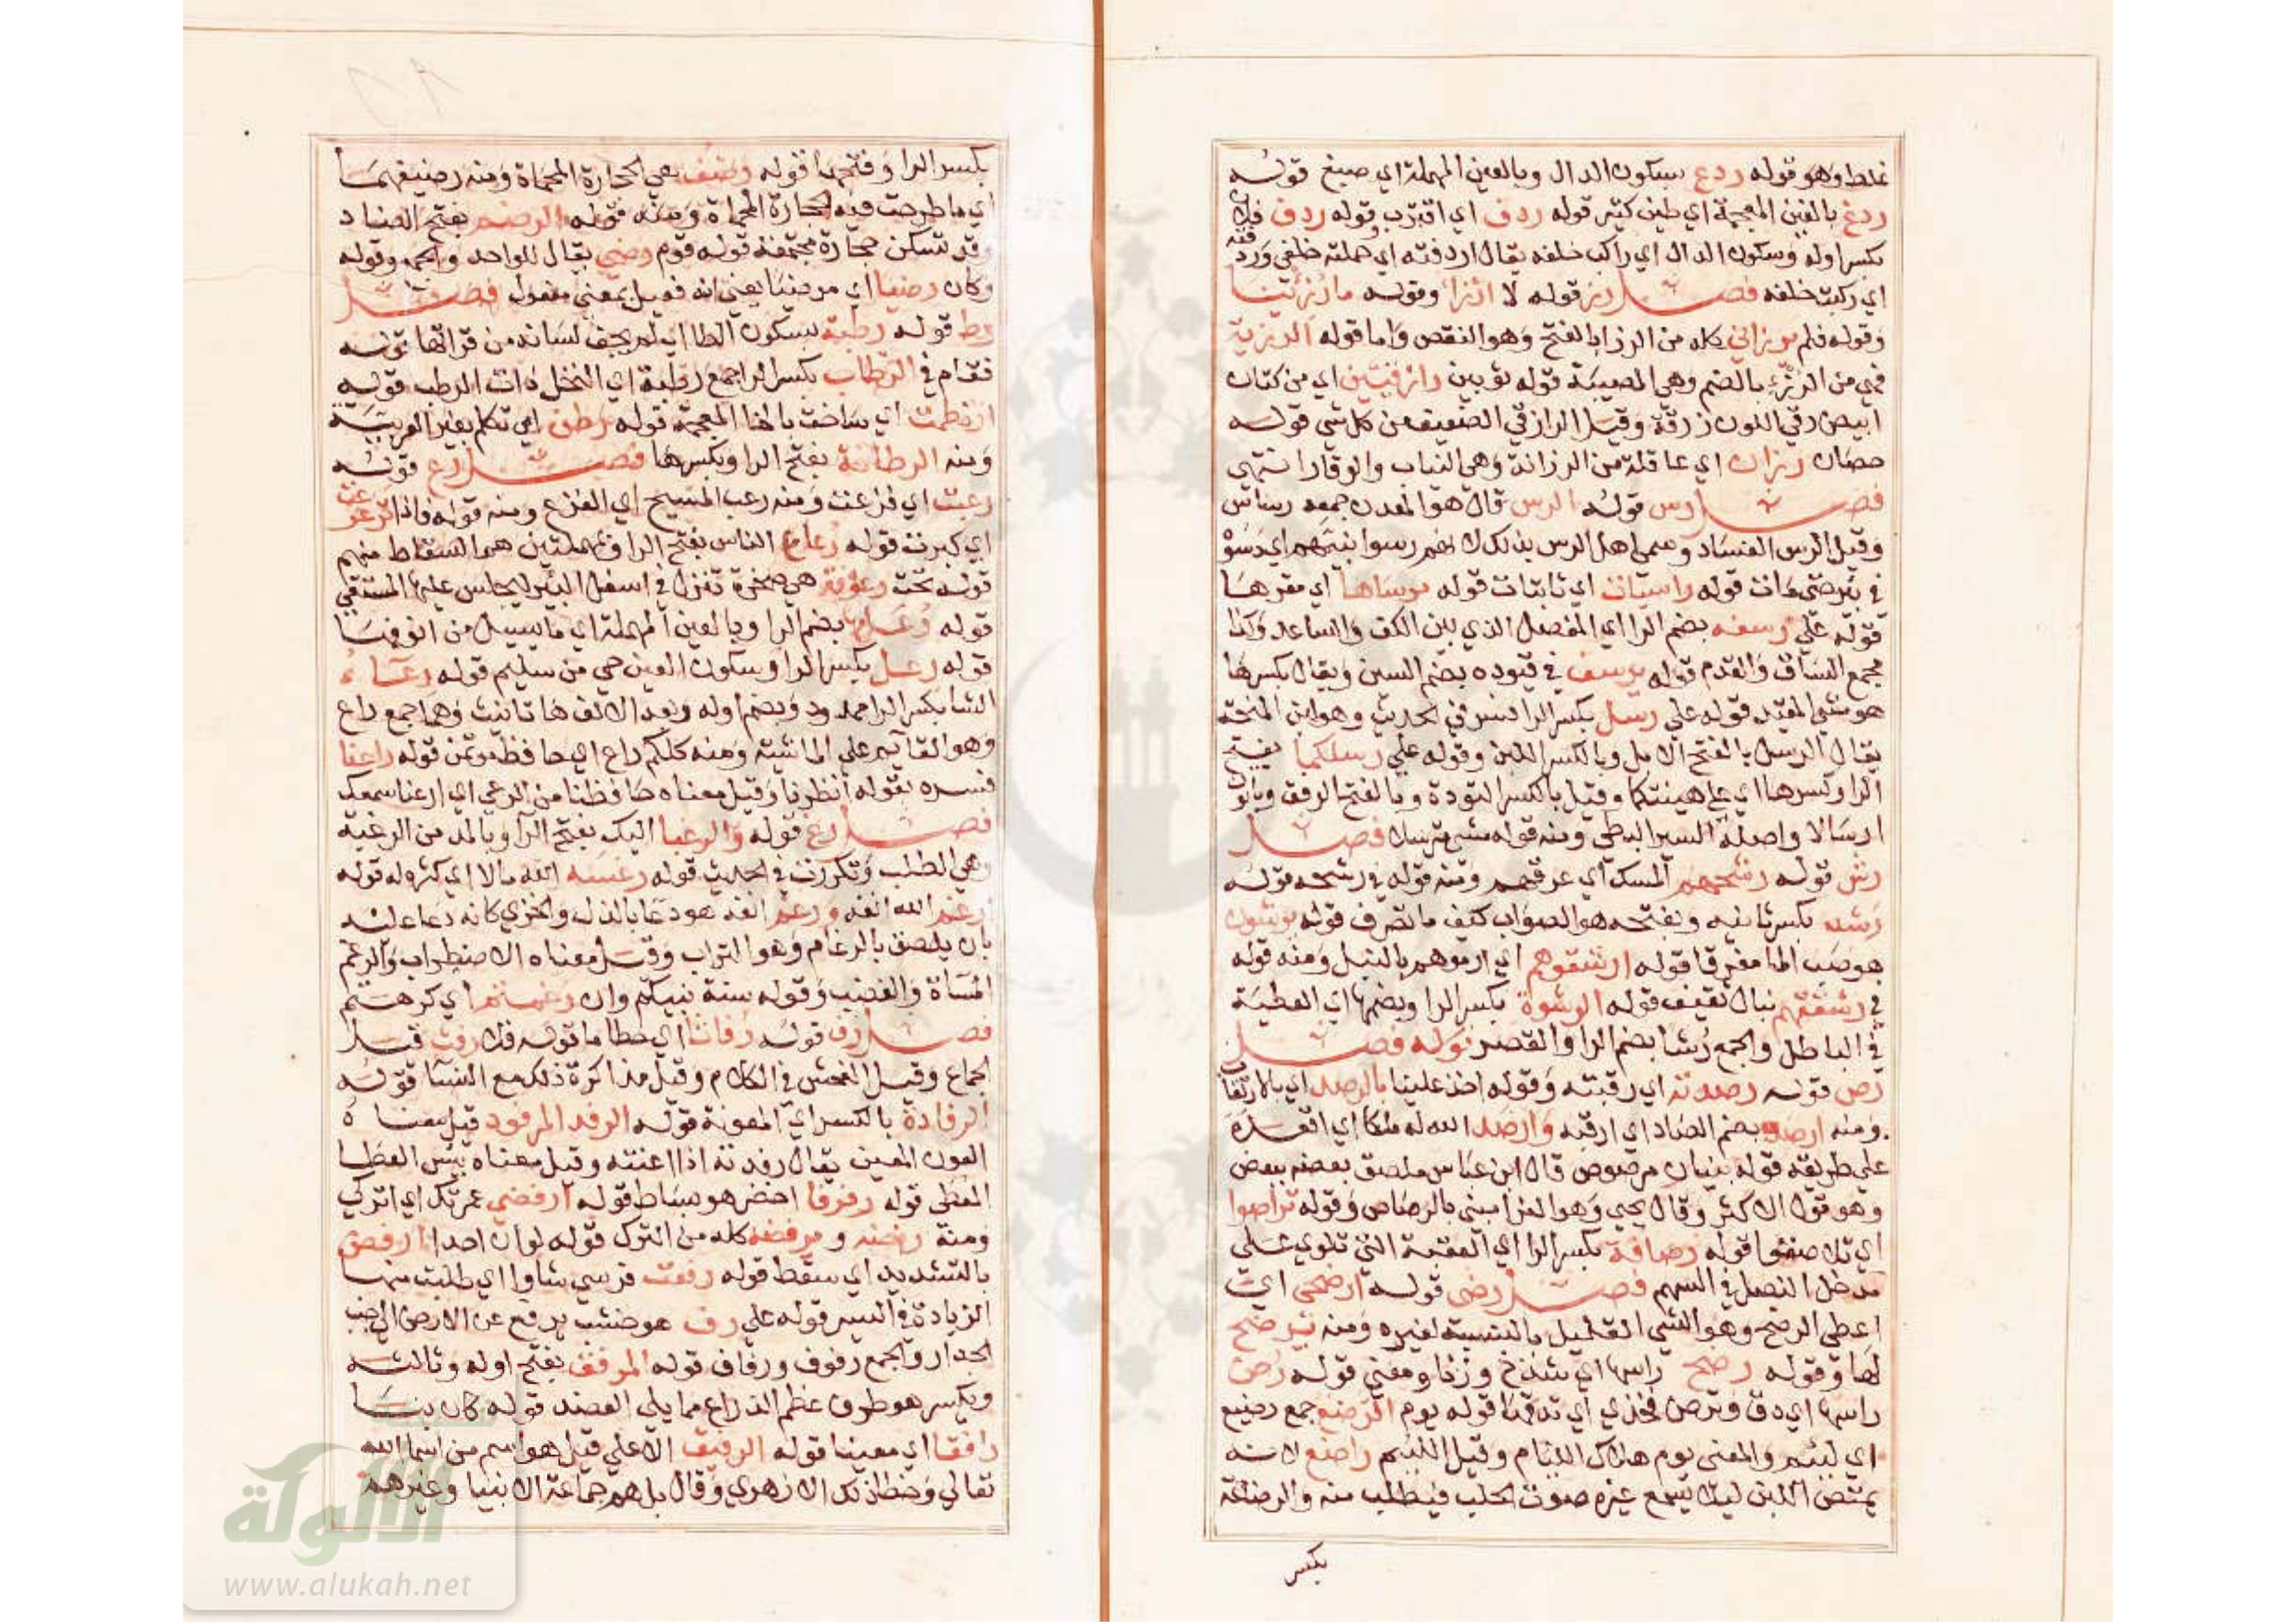 غلط وهو قوله ردع بسكون الدال وبالعين المهملة اي صبغ قوله
ردغ بالغين المعجمة اي طين كثير قوله ردف اي اقترب وقوله ردف فلان
بكسر اوله وسكون الدال اي راكب خلفه يقال اردفته اي حملته خلفي وردفته
اي ركبت خلفه فصل رز قوله لا ارزا وقوله ما رزئنا
وقوله فلم يرزاني كله من الرزا بالفتح وهو النقص واما قوله الرزية
فهي من الرزء بالضم وهي المصيبة قوله ثوبين رازقيين اي من كتان
ابيض وفي اللون زرقة وقيل الرازقي الضعيف من كل شي قوله
حصان رزان اي عاقلة من الرزانة وهي الثبات والوقار انتهى
فصل رس قوله الرس قال هو المعدن جمعه رساس
وقيل الرس الفساد وسمي اهل الرس بذلك لانهم رسوا نبيهم اي دسوه
في بئر حتى مات قوله راسيات اي ثابتات قوله مرساها اي مقرها
قوله على رسغه بضم الرا اي المفصل الذي بين الكف والساعد وكذا
مجمع الساق والقدم قوله يرسف في قيوده بضم السين ويقال بكسرها
هو مشي المقيد قوله على رسل بكسر الرا فسر في الحديث وهو لبن المنحة
يقال الرسل بالفتح الابل وبالكسر اللبن وقوله على رسلكما بفتح
الرا وكسرها اي على هينتكما وقيل بالكسر التؤدة وبالفتح الرفق
ارسالا واصله السير البطي ومنه قوله فصل
رش قوله رشحهم المسك اي عرقهم ومنه قوله في رشحه قوله
رشد بكسر ثانيه وبفتحه هو الصواب كيف ما تصرف قوله يرشون
هو صب الما مفرقا قوله ارشقوهم اي ارموهم بالنبل ومنه قوله
في رشقتهم نبال ثقيف قوله الرشوة بكسر الرا وبضمها اي العطية
في الباطل والجمع رشا بضم الرا والقصر قوله فصل
رص قوله رصدته اي رقبته وقوله اخذ علينا بالرصد اي بالارتقاب
ومنه ارصد بضم الصاد اي ارقبه وارصد الله له ملكا اي اقعده
على طريقه قوله بنيان مرصوص قال ابن عباس ملصق بعضه ببعض
وهو قول الاكثر وقال يحيى وهو الفرا مبني بالرصاص وقوله تراصوا
اي تلاصقوا قوله رصافه بكسر الرا اي العقبة التي تلوي على
مدخل النصل في السهم فصل رض قوله ارضخي اي
اعطي الرضخ وهو الشي القليل بالنسبة لغيره ومنه يرضخ
لها وقوله رضخ راسها اي شدخ وزنا ومعنى قوله رض
راسها اي دق وترض فخذي اي تدقها قوله يوم الرضع جمع رضيع
اي لئيم والمعنى يوم هلاك اللئام وقيل اللئيم راضع لانه
يمتص اللبن ليلا يسمع غيره صوت الحلب فيطلب منه والرضاعة
بكسر
بكسر الرا وفتحها قوله رضيف هي الحجارة المحماة ومنه رضيفهما
اي ما طرحت فيه الحجارة المحماة ومنه قوله الرضم بفتح الضاد
وقد تسكن حجارة مجتمعة قوله قوم رضى يقال للواحد والجمع وقوله
وكان رضيا اي مرضيا يعني انه فعيل بمعنى مفعول فصل
رط قوله رطبة بسكون الطا اي لم يجف لسانه من قراتها قوله
فقام في الرطاب بكسر الرا جمع رطبة اي النخل ذات الرطب قوله
ارتطمت اي ساخت بالخا المعجمة قوله رطن اي تكلم بغير العربية
ومنه الرطانة بفتح الرا وبكسرها فصل رع قوله
رعبت اي فزعت ومنه رعب المسيح اي الفزع ومنه قوله فاذا ترعرعت
اي كبرت قوله رعاع الناس بفتح الرا وبمهملتين هم السقاط منهم
قوله تحت رعوفة هي صخرة تنزل في اسفل البئر ليجلس عليها المستقي
قوله رعامها بضم الرا وبالعين المهملة اي ما يسيل من انوفها
قوله رعل بكسر الرا وسكون العين حي من سليم قوله رعاء
الشا بكسر الرا ممدود وبضم اوله وبعد الالف ها تانيث وهما جمع راع
وهو القايم على الماشية ومنه كلكم راع اي حافظ مؤتمن قوله راعنا
فسره بقوله انظرنا وقيل معناه حافظنا من الرعي اي ارعنا سمعك
فصل رغ قوله والرغبا اليك بفتح الرا وبالمد من الرغبة
وهي الطلب وتكررت في الحديث قوله رغسه الله مالا اي كثره له قوله
رغم الله انفه ورغم انفه هو دعا بالذل والخزي كانه دعا عليه
بان يلصق بالرغام وهو التراب وقيل معناه الاضطراب والرغم
المساة والغضب وقوله سنة نبيكم وان رغمتم اي كرهتم
فصل رف قوله رفاتا اي حطاما قوله فلا رفث قيل
الجماع وقيل الفحش في الكلام وقيل مذاكرة ذلك مع النسا قوله
الرفادة بالكسر اي المعونة قوله الرفد المرفود قيل معناه
العون المعين يقال رفدته اذا اعنته وقيل معناه بئس العطا
المعطى قوله رفرفا اخضر هو بساط قوله ارفضي عمرتك اي اتركي
ومنه رفضه و يرفضه كله من الترك قوله لو ان احدا ارفض
بالتشديد اي سقط قوله رفعت فرسي شاوا اي طلبت منها
الزيادة في السير قوله على رف هو خشب يرفع عن الارض الى جنب
الجدار والجمع رفوف ورفاف قوله المرفق بفتح اوله وثالثه
وبكسر هو طرف عظم الذراع مما يلي العضد قوله كان بنا
رافقا اي معينا قوله الرفيق الاعلى قيل هو اسم من اسما الله
تعالى وخطا ذلك الازهري وقال بل هم جماعة الانبيا وغيرهم
شبكة
الألوكة
www.alukah.net